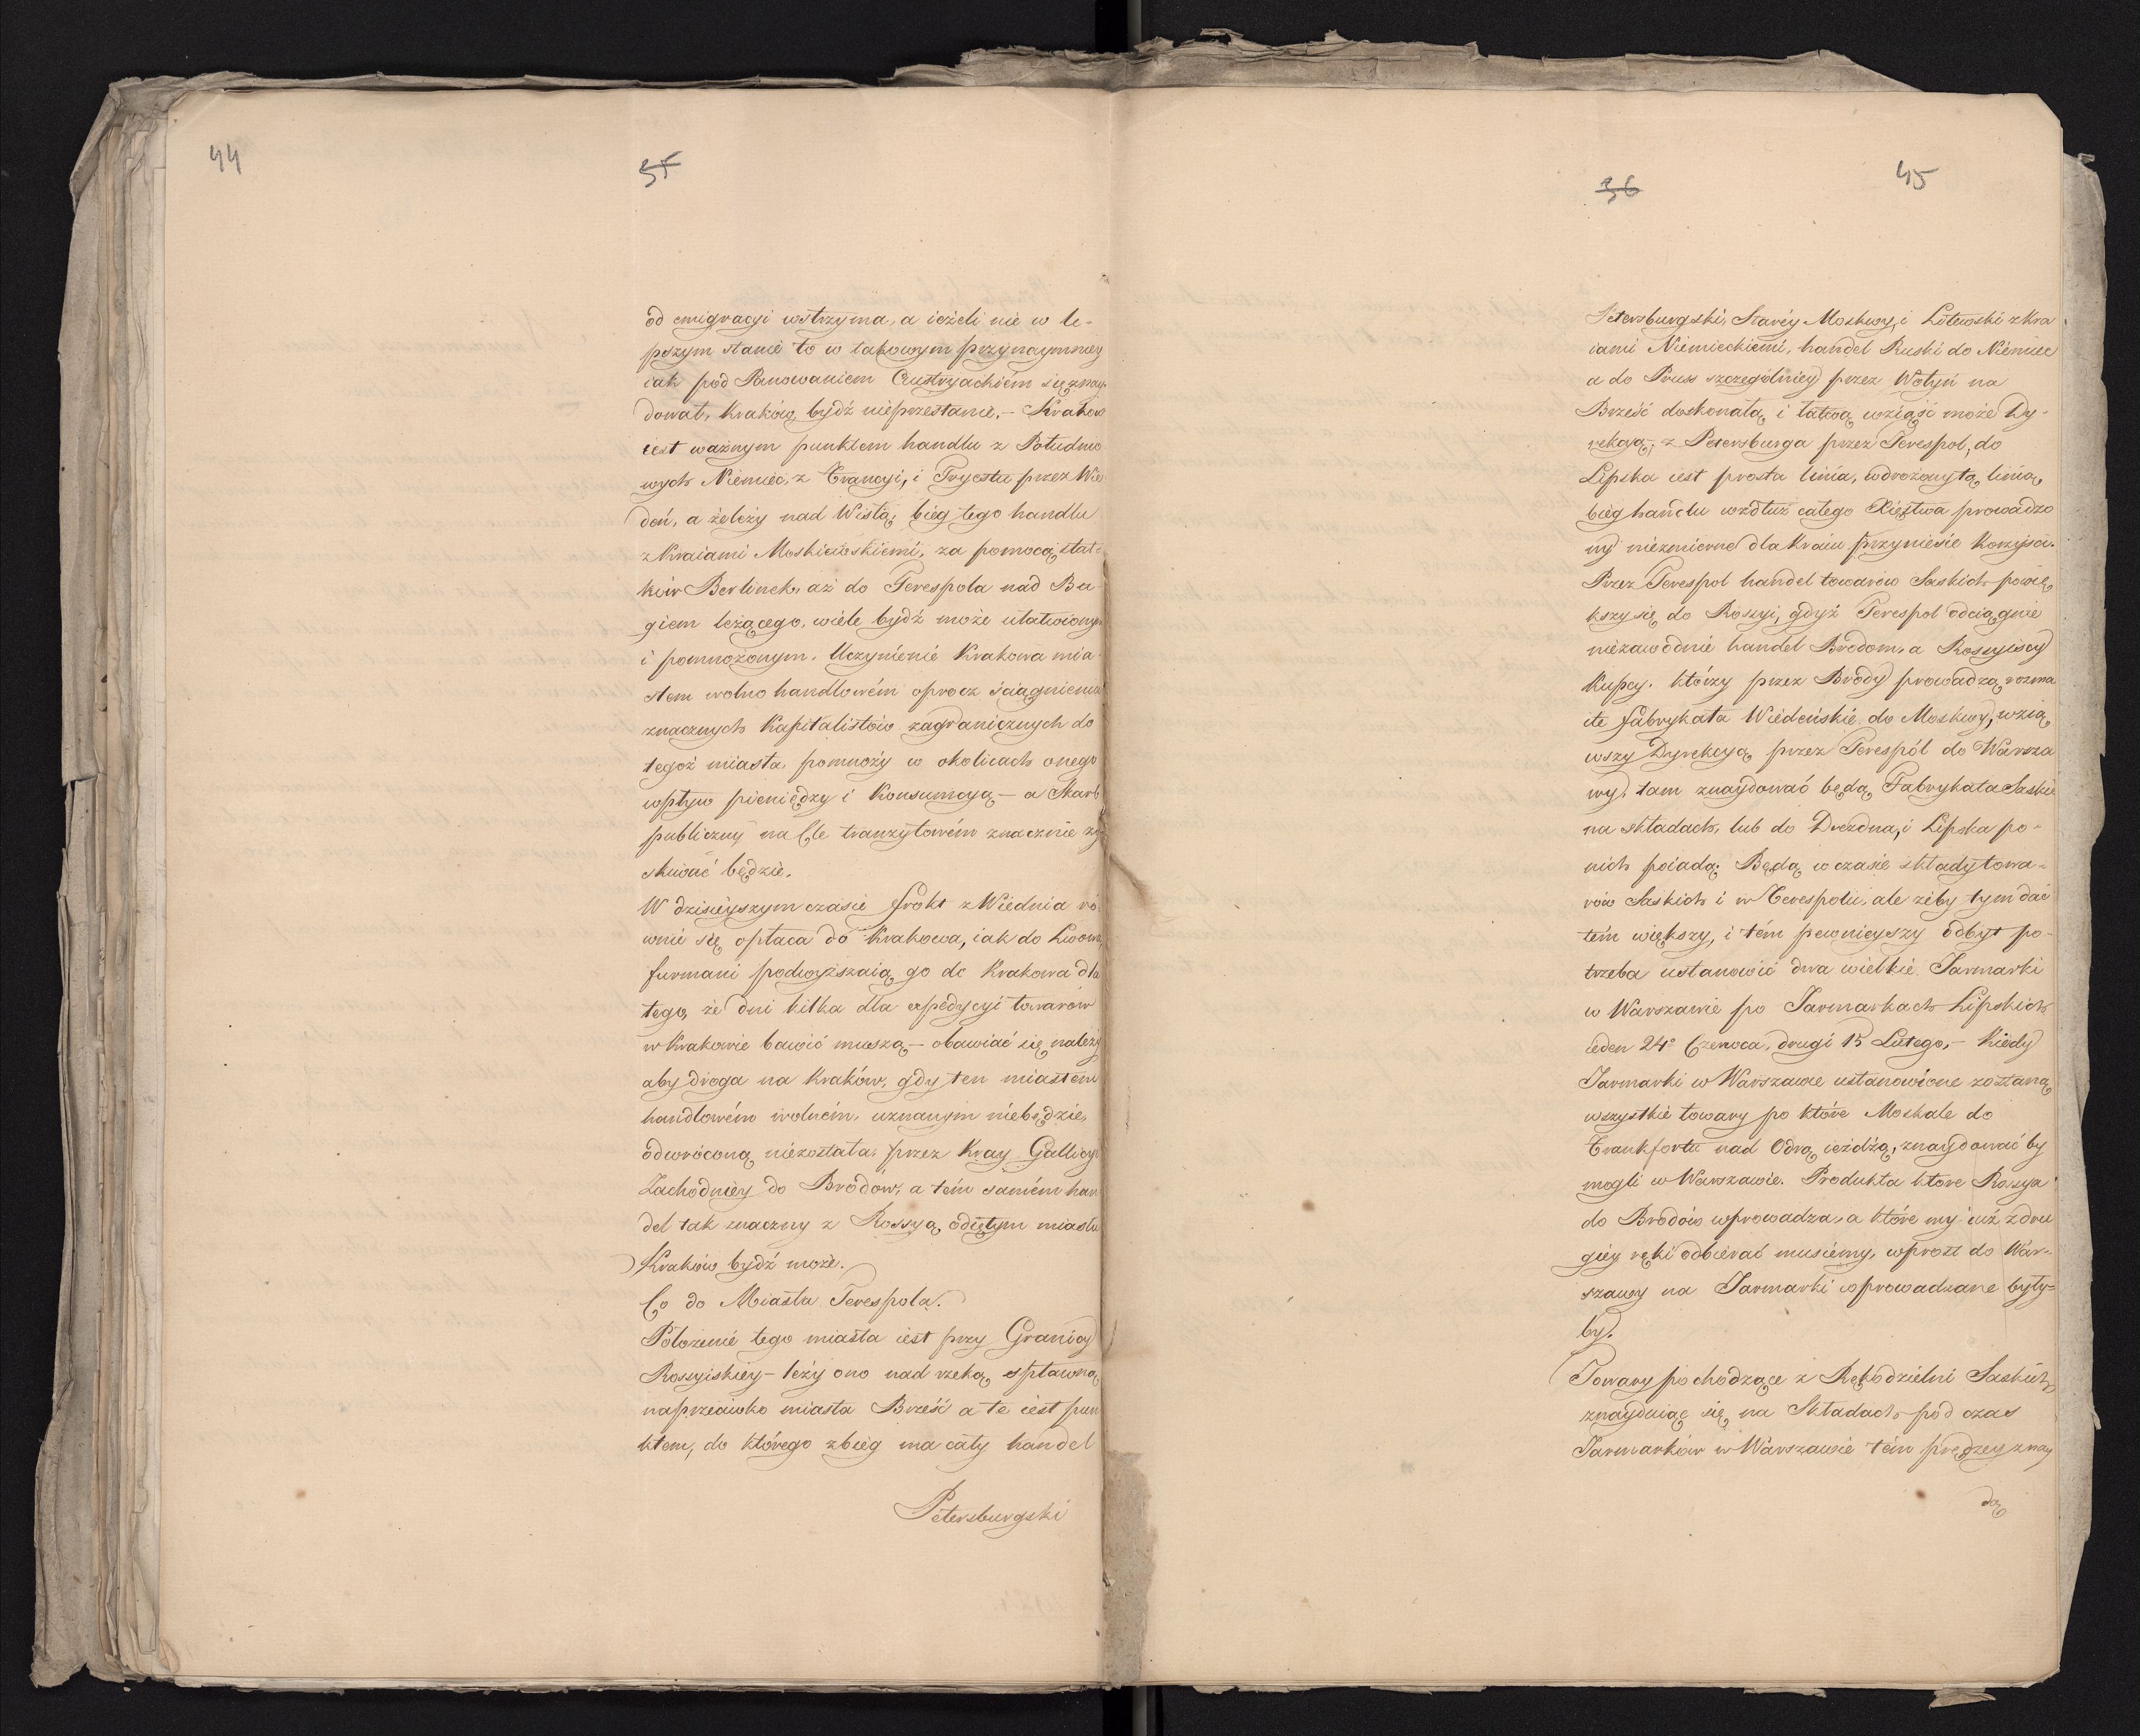 44
35
od emigracyi wstrzyma, a ieżeli nie w le-
pszym stanie to w takowym przynaymniey
iak pod Panowaniem Austryackiém się znay-
dował, Kraków bydź nieprzestanie. – Kraków
iest ważnym punktem handlu z Południo
wych Niemiec, z Francyi, i Tryestu przez Wie
deń, a żeleży nad Wisłą, bieg tego handlu
z Kraiami Moskiewskiemi, za pomocą stat-
ków Berlinek, aż do Terespola nad Bu
giem leżącego, wiele bydź może ułatwionym
i pomnożonym. Uczynienie Krakowa mia-
stem wolno handlowém oprocz ściągnienia
znacznych Kapitalistów zagranicznych do
tegoż miasta, pomnoży w okolicach onego
wpływ pieniędzy i Konsumcyą – a Skarb
publiczny na Cle tranzytowém znacznie zy
skiwać będzie.
W dzisieyszym czasie frokt z Wiednia ró-
wnie się opłaca do Krakowa, iak do Lwowa,
furmani podwyższaią go do Krakowa dla
tego, że dni kilka dla expedycyi towarów
w Krakowie bawić muszą – obawiać się należy
aby droga na Kraków, gdy ten miastem
handlowém wolném, uznanym niebędzie,
odwróconą niezostała, przez Kray Gallicyi
Zachodniey do Brodów, a tém samém han
del tak znaczny z Rossyą odiętym miastu
Kraków bydź może.
Co do Miasta Terespola.
Położenie tego miasta iest przy Granicy
Rossyiskiey – leży ono nad rzeką spławną
naprzeciwko miasta Brześć a te iest pun
ktem, do którego zbieg ma cały handel
Petersburgski
36
45
Petersburgski, Staréy Moskwy, i Litewski z Kra
iami Niemieckiemi, handel Ruski do Niemiec
a do Pruss szczególniey przez Wołyń na
Brześć doskonałą i łatwą wziąść może Dy-
rekcyą; z Petersburga przez Terespol, do
Lipska iest prosta linia, wdrożony tą linią,
bieg handlu wzdłuż całego Xięstwa prowadzo
ny niezmierne dla Kraiu przyniesie korzyści.
Przez Terespol handel towarów Saskich powię
kszy się do Rossyi, gdyż Terespol odciągnie
niezawodnie handel Brodom, a Rossyiscy
Kupcy, którzy przez Brody prowadzą rozma
ite fabrykata Wiedeńskie do Moskwy, wzią
wszy Dyrekcyą przez Terespól do Warsza
wy, tam znaydować będą Fabrykata Saskie
na składach, lub do Drezdna, i Lipska po-
nich poiadą. Będą w czasie składy towa-
rów Saskich i w Terespolu, ale żeby tym dać
tém większy, i tém pewnieyszy odbyt po-
trzeba ustanowić dwa wielkie Jarmarki
w Warszawie po Jarmarkach Lipskich
ieden 24º Czerwca, drugi 15 Lutego. – Kiedy
Jarmarki w Warszawie ustanowione zostaną
wszystkie towary po które Moskale do
Frankfortu nad Odrą ieżdżą, znaydować by
mogli w Warszawie. Produkta które Rossya
do Brodów wprowadza, a które my iuż z dru
giéy ręki odbierać musiemy, wprost do War-
szawy na Jarmarki wprowadzane były-
by.
Towary pochodzące z Rękodzielni Saskich
znayduiąc się na Składach pod czas
Jarmarków w Warszawie tém prędzey znay
dą